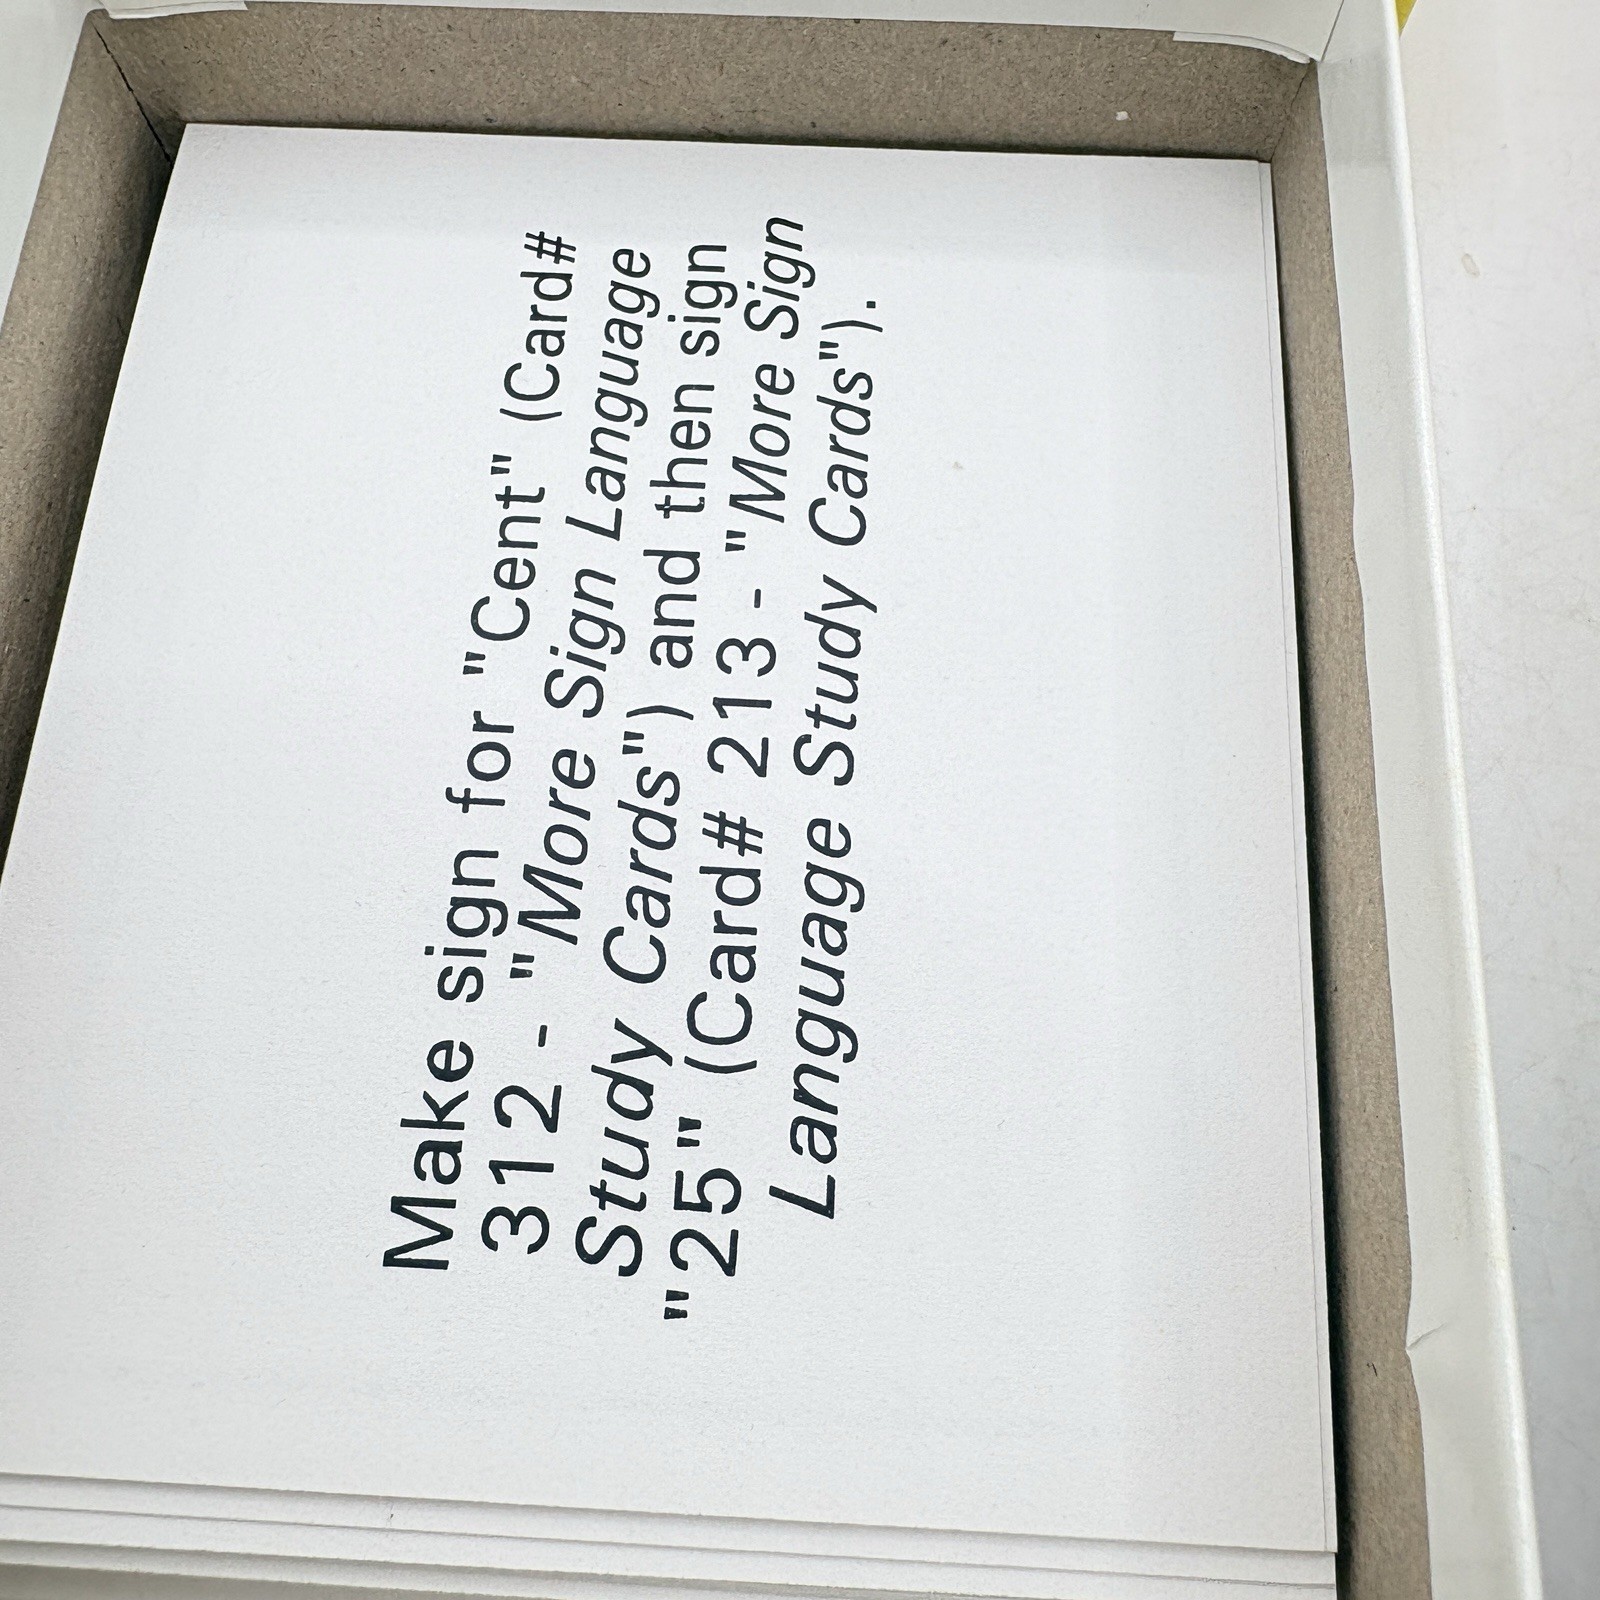 Make sign for "Cent" (Card#
312 - "More Sign Language
Study Cards") and then sign
"25" (Card# 213 - "More Sign
Language Study Cards").